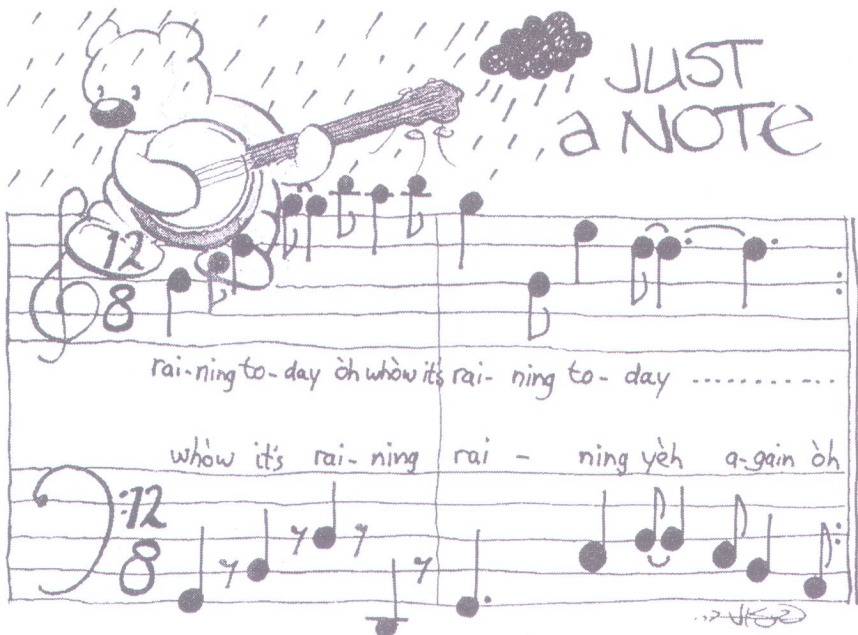 JUST
a NOTE
12
8
rai-ning to-day òh whòw it's rai-ning to-day ............
whòw it's rai-ning rai - ning yèh a-gain òh
12
8